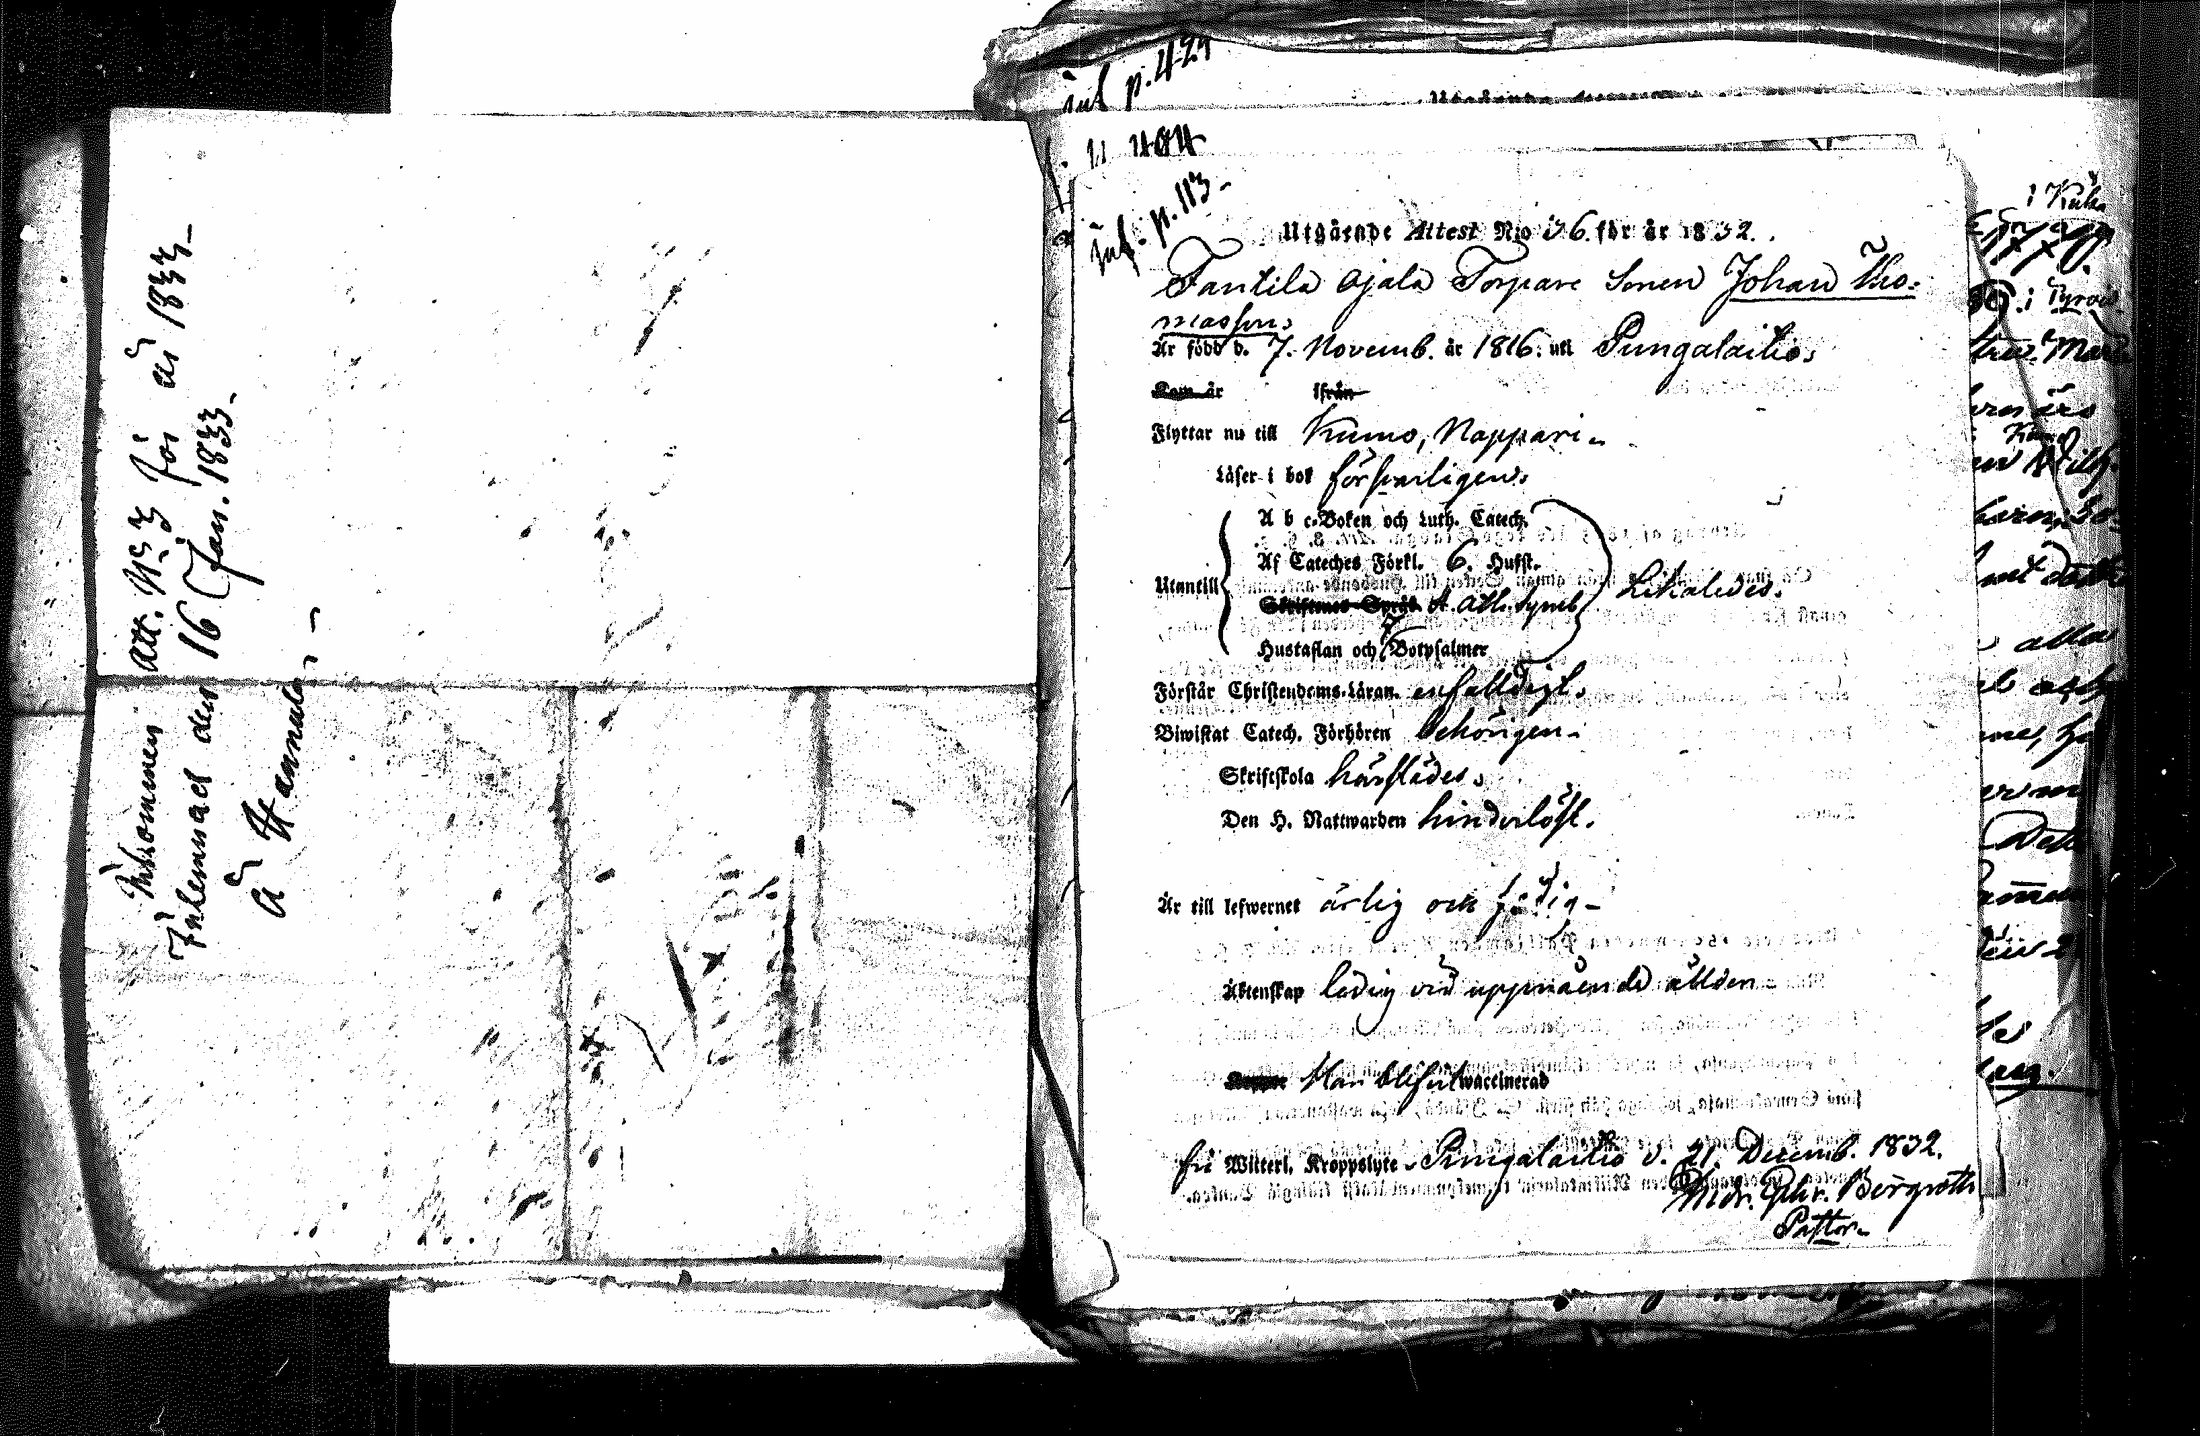 Inkommen att. N:o 3 för år 1833
Inlemnad den 16 Jan. 1833
å Hannula
inf p. 429
p. 11 404
inf. p. 113
Utgående Attest N:o 36 för år 1832.
Tantila Ojala Torpare Sonen Johan Tho-
masson,
Är född d. 7. Novemb. år 1816. uti Pungalaitio,
Kom år ifrån
Flyttar nu till Kumo, Nappari
Läser i bok försvarligen,
A b c-Boken och Luth. Catech.
Af Cateches Förkl. 6. Hufst.
Utantill Skriftenes Språk A. Ath. Symb. Likaledes.
Hustaflan och 7 Botpsalmer
Förstår Christendoms-Läran enfaldigt,
Biwistat Catech. Förhören behörigen
Skriftskola härstädes,
Den H. Nattwarden hinderlöst.
Är till lefwernet ärlig och
Äktenskap ledig vid uppnående ålder
Koppor Har blifvit waccinerad
fri Witterl. Kroppslyte. Pungalaitio d. 21. Decemb. 1832.
Andr. Ephr. Bergroth
Pastor